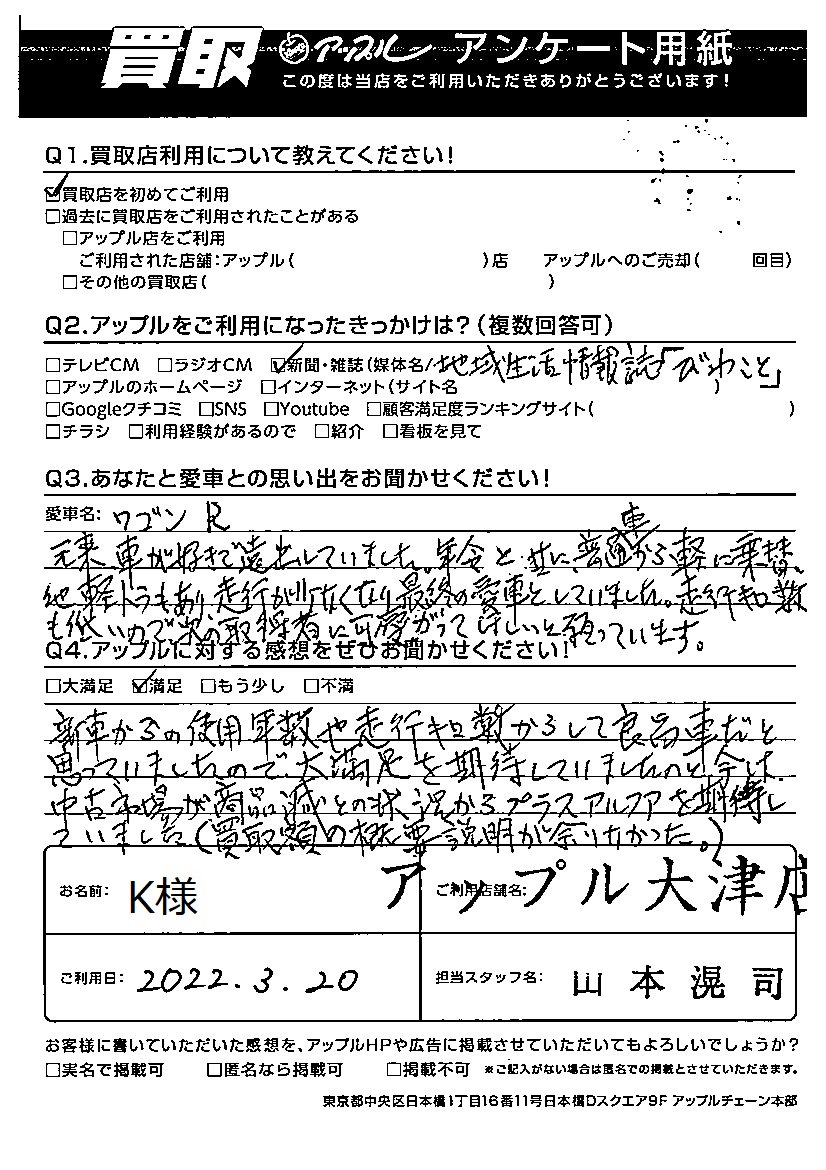 買取 アップル アンケート用紙
この度は当店をご利用いただきありがとうございます!
Q1.買取店利用について教えてください!
☑買取店を初めてご利用
□過去に買取店をご利用されたことがある
□アップル店をご利用
ご利用された店舗:アップル( )店 アップルへのご売却( 回目)
□その他の買取店( )
Q2.アップルをご利用になったきっかけは?(複数回答可)
□テレビCM □ラジオCM ☑新聞・雑誌(媒体名/地域生活情報誌「びわこと」
□アップルのホームページ □インターネット(サイト名 )
□Googleクチコミ □SNS □Youtube □顧客満足度ランキングサイト( )
□チラシ □利用経験があるので □紹介 □看板を見て
Q3.あなたと愛車との思い出をお聞かせください!
愛車名: ワゴンR
元来、車が好きで遠出していました。年令と並に、普通車から軽に乗替、
他軽トラもあり走行が少なくなり最終の愛車としていました。走行キロ数
も低いので次の取得者に可愛がってほしいと願っています。
Q4.アップルに対する感想をぜひお聞かせください!
□大満足 ☑満足 □もう少し □不満
新車からの使用年数や走行キロ数からして良品車だと
思っていましたので、大満足を期待していましたのと今は、
中古市場が商品減との状況からプラスアルファを期待し
ていました(買取額の概要説明が余りなかった。)
お名前: K様 ご利用店舗名: アップル大津店
ご利用日: 2022.3.20 担当スタッフ名: 山本滉司
お客様に書いていただいた感想を、アップルHPや広告に掲載させていただいてもよろしいでしょうか?
□実名で掲載可 □匿名なら掲載可 □掲載不可 ※ご記入がない場合は匿名での掲載とさせていただきます。
東京都中央区日本橋1丁目16番11号日本橋Dスクエア9F アップルチェーン本部